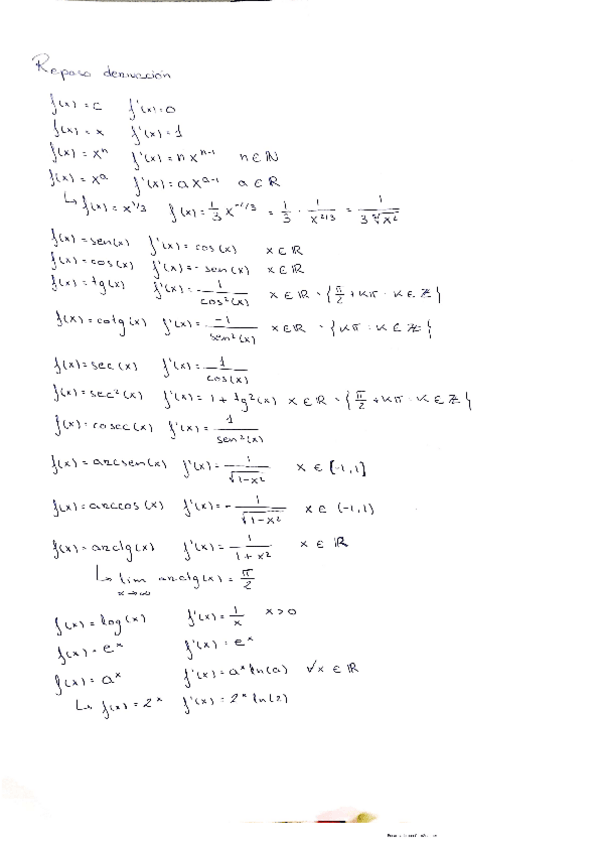 Repaso derivación
f(x) = c f'(x) = 0
f(x) = x f'(x) = 1
f(x) = xⁿ f'(x) = n xⁿ⁻¹ n ∈ ℕ
f(x) = xᵃ f'(x) = a xᵃ⁻¹ a ∈ ℝ
↳ f(x) = x^1/3 f(x) = 1/3 x^-1/3 = 1/3 · 1/x^2/3 = 1/(3 ∛x²)
f(x) = sen(x) f'(x) = cos(x) x ∈ ℝ
f(x) = cos(x) f'(x) = - sen(x) x ∈ ℝ
f(x) = tg(x) f'(x) = 1/cos²(x) x ∈ ℝ \ {π/2 + kπ : k ∈ ℤ}
f(x) = cotg(x) f'(x) = -1/sen²(x) x ∈ ℝ \ {kπ : k ∈ ℤ}
f(x) = sec(x) f'(x) = 1/cos(x)
f(x) = sec²(x) f'(x) = 1 + tg²(x) x ∈ ℝ \ {π/2 + kπ : k ∈ ℤ}
f(x) = cosec(x) f'(x) = 1/sen²(x)
f(x) = arcsen(x) f'(x) = 1/√(1-x²) x ∈ [-1,1]
f(x) = arccos(x) f'(x) = - 1/√(1-x²) x ∈ (-1,1)
f(x) = arctg(x) f'(x) = 1/(1+x²) x ∈ ℝ
↳ lim x→∞ arctg(x) = π/2
f(x) = log(x) f'(x) = 1/x x > 0
f(x) = eˣ f'(x) = eˣ
f(x) = aˣ f'(x) = aˣ ln(a) ∀x ∈ ℝ
↳ f(x) = 2ˣ f'(x) = 2ˣ ln(2)